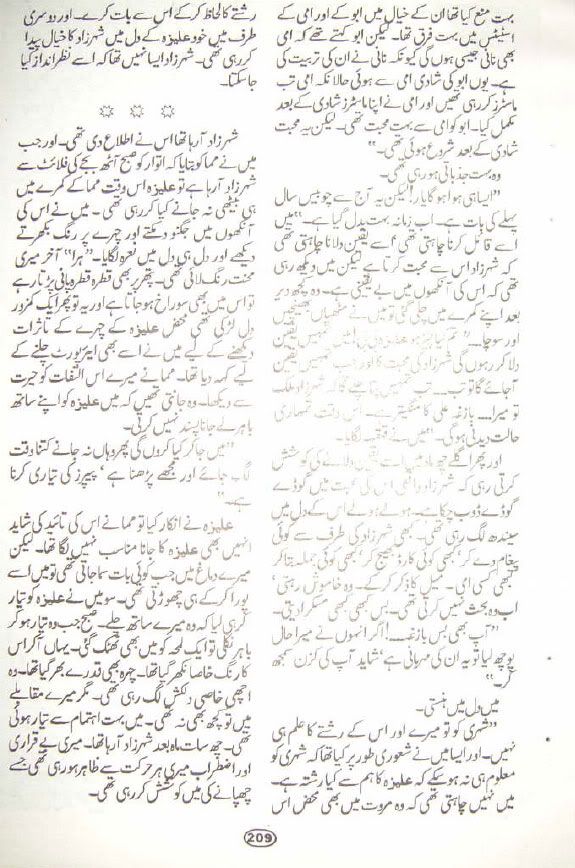 بہت منع کیا تھا ان کے خیال میں ابو کے اور امی کے
اسٹیٹس میں بہت فرق تھا۔ لیکن ابو کہتے تھے کہ امی
بھی نانی جیسی ہوں گی کیونکہ نانی نے ان کی تربیت کی
ہے۔ یوں ابو کی شادی امی سے ہوئی حالانکہ امی تب
ماسٹرز کر رہی تھیں اور امی نے اپنا ماسٹرز شادی کے بعد
مکمل کیا۔ ابو کو امی سے بہت محبت تھی۔ لیکن یہ محبت
شادی کے بعد شروع ہوئی تھی۔"
وہ بہت جذباتی ہو رہی تھی۔
"ایسا ہی ہوا ہو گا یار! لیکن یہ آج سے چوبیس سال
پہلے کی بات ہے۔ اب زمانہ بہت بدل گیا ہے۔" میں
اسے قائل کرنا چاہتی تھی اسے یقین دلانا چاہتی تھی
کہ شہرزاد اس سے محبت کرتا ہے لیکن میں دیکھ رہی
تھی کہ اس کی آنکھوں میں بے یقینی ہے۔ وہ کچھ دیر
بعد اپنے کمرے میں چلی گئی تو میں نے مٹھیاں بھینچیں
اور سوچا۔ "تم کیا چیز ہو علیزہ میں تمہیں یقین
دلا کر رہوں گی شہرزاد کی محبت کا اور جب تمہیں یقین
آجائے گا تو تب۔۔۔ تب تمہیں پتا چلے گا کہ شہرزاد ملک
تو میرا۔۔۔ بازغہ علی کا منگیتر ہے۔ اس وقت تمہاری
حالت دیدنی ہو گی۔" میں نے قہقہہ لگایا۔
اور پھر اگلے چھ ماہ میں اسے یقین دلانے کی کوشش
کرتی رہی کہ شہرزاد واقعی اس کی محبت میں گوڈے
گوڈے ڈوب چکا ہے۔ ہولے ہولے اس کے دل میں
سیندھ لگ رہی تھی۔ کبھی شہرزاد کی طرف سے کوئی
پیغام دے کر، کبھی کوئی کارڈ بھیج کر، کبھی کوئی جملہ بتا کر
کبھی کسی ای۔ میل کا ذکر کر کے۔ وہ خاموش رہتی،
اب وہ بحث نہیں کرتی تھی۔ بس کبھی کبھی مسکرا دیتی۔
"آپ بھی بس بازغہ۔۔۔! اگر انہوں نے میرا حال
پوچھ لیا تو یہ ان کی مہربانی ہے، شاید آپ کی کزن سمجھ
کر۔"
میں دل میں ہنستی۔
"شہری کو تو میرے اور اس کے رشتے کا علم ہی
نہیں۔ اور ایسا میں نے شعوری طور پر کیا تھا کہ شہری کو
معلوم ہی نہ ہو سکے کہ علیزہ کا ہم سے کیا رشتہ ہے۔
میں نہیں چاہتی تھی کہ وہ مروت میں بھی محض اس
رشتے کا لحاظ کر کے اس سے بات کرے۔ اور دوسری
طرف میں خود علیزہ کے دل میں شہرزاد کا خیال پیدا
کر رہی تھی۔ شہرزاد ایسا نہیں تھا کہ اسے نظر انداز کیا
جا سکتا۔
شہرزاد آ رہا تھا اس نے اطلاع دی تھی۔ اور جب
میں نے مما کو بتایا کہ اتوار کو صبح آٹھ بجے کی فلائٹ سے
شہرزاد آ رہا ہے تو علیزہ اس وقت مما کے کمرے میں
ہی بیٹھی نہ جانے کیا کر رہی تھی۔ میں نے اس کی
آنکھوں میں جگنو دمکتے اور چہرے پر رنگ بکھرتے
دیکھے اور دل ہی دل میں نعرہ لگایا۔ "ہرا" آخر میری
محنت رنگ لائی تھی۔ پتھر پر بھی قطرہ قطرہ پانی پڑتا رہے
تو اس میں بھی سوراخ ہو جاتا ہے اور یہ تو پھر ایک کمزور
دل لڑکی تھی محض علیزہ کے چہرے کے تاثرات
دیکھنے کے لیے میں نے اسے بھی ایئرپورٹ چلنے کے
لیے کہہ دیا تھا۔ مما نے میرے اس التفات کو حیرت
سے دیکھا۔ وہ جانتی تھیں کہ میں علیزہ کو اپنے ساتھ
باہر لے جانا پسند نہیں کرتی۔
"میں جا کر کیا کروں گی پھر وہاں نہ جانے کتنا وقت
لگ جائے اور مجھے پڑھنا ہے، پیپرز کی تیاری کرنا
ہے۔"
علیزہ نے انکار کیا تو مما نے اس کی تائید کی شاید
انہیں بھی علیزہ کا جانا مناسب نہیں لگا تھا۔ لیکن
میرے دماغ میں جب کوئی بات سما جاتی تھی تو میں اسے
پورا کر کے ہی چھوڑتی تھی۔ سو میں نے علیزہ کو تیار
کر ہی لیا کہ وہ میرے ساتھ چلے۔ صبح جب وہ تیار ہو کر
باہر نکلی تو ایک لمحہ کو میں بھی ٹھٹک گئی۔ یہاں آ کر اس
کا رنگ خاصا نکھر گیا تھا۔ چہرہ بھی قدرے بھر گیا تھا۔ وہ
اچھی خاصی دلکش لگ رہی تھی۔ مگر میرے مقابلے
میں تو کچھ بھی نہ تھی۔ میں بہت اہتمام سے تیار ہوئی
تھی۔ چھ سات ماہ بعد شہرزاد آ رہا تھا۔ میری بے قراری
اور اضطراب میری ہر حرکت سے ظاہر ہو رہی تھی جسے
چھپانے کی میں کوشش کر رہی تھی۔
209